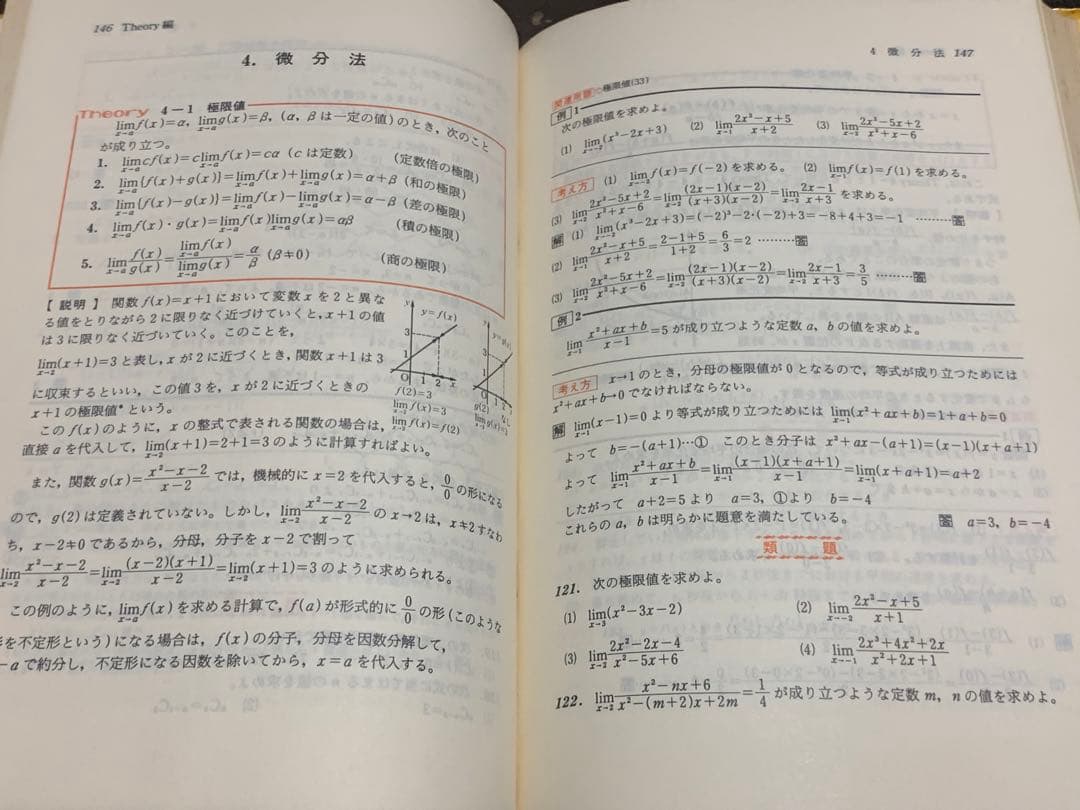 146 Theory編
4. 微分法
Theory 4－1 極限値
lim_{x→a} f(x)=α, lim_{x→a} g(x)=β, (α, βは一定の値) のとき, 次のこと
が成り立つ。
1. lim_{x→a} cf(x)=c lim_{x→a} f(x)=cα (cは定数) (定数倍の極限)
2. lim_{x→a} {f(x)+g(x)}=lim_{x→a} f(x)+lim_{x→a} g(x)=α+β (和の極限)
3. lim_{x→a} {f(x)－g(x)}=lim_{x→a} f(x)－lim_{x→a} g(x)=α－β (差の極限)
4. lim_{x→a} f(x)・g(x)=lim_{x→a} f(x) lim_{x→a} g(x)=αβ (積の極限)
5. lim_{x→a} f(x)/g(x)=lim_{x→a} f(x)/lim_{x→a} g(x)=α/β (β≠0) (商の極限)
【説明】 関数 f(x)=x+1 において変数 x を 2 と異な
る値をとりながら 2 に限りなく近づけていくと, x+1 の値
は 3 に限りなく近づいていく。このことを,
lim_{x→2} (x+1)=3 と表し, x が 2 に近づくとき, 関数 x+1 は 3
に収束するといい, この値 3 を, x が 2 に近づくときの
x+1 の極限値* という。
y y=f(x)
3
1
O 1 2 x
f(2)=3
lim_{x→2} f(x)=3
lim_{x→2} f(x)=f(2)
y
3
1
O 1 2
g(2)
このf(x)のように, x の整式で表される関数の場合は,
直接 a を代入して, lim_{x→2} (x+1)=2+1=3 のように計算すればよい。
また, 関数 g(x)=(x²－x－2)/(x－2) では, 機械的に x=2 を代入すると, 0/0 の形になる
ので, g(2)は定義されていない。しかし, lim_{x→2} (x²－x－2)/(x－2) の x→2 は, x≠2 すなわ
ち, x－2≠0 であるから, 分母, 分子を x－2 で割って
lim_{x→2} (x²－x－2)/(x－2)=lim_{x→2} (x－2)(x+1)/(x－2)=lim_{x→2} (x+1)=3 のように求められる。
この例のように, lim_{x→a} f(x) を求める計算で, f(a) が形式的に 0/0 の形 (このような
を不定形という) になる場合は, f(x) の分子, 分母を因数分解して,
－a で約分し, 不定形になる因数を除いてから, x=a を代入する。
4 微分法 147
関連原題 ○極限値(33)
例 1
次の極限値を求めよ。
(1) lim_{x→－2} (x³－2x+3) (2) lim_{x→1} (2x²－x+5)/(x+2) (3) lim_{x→2} (2x²－5x+2)/(x²+x－6)
考え方 (1) lim_{x→－2} f(x)=f(－2) を求める。 (2) lim_{x→1} f(x)=f(1) を求める。
(3) lim_{x→2} (2x²－5x+2)/(x²+x－6)=lim_{x→2} (2x－1)(x－2)/(x+3)(x－2)=lim_{x→2} (2x－1)/(x+3) を求める。
解 (1) lim_{x→－2} (x³－2x+3)=(－2)³－2・(－2)+3=－8+4+3=－1 ………答
(2) lim_{x→1} (2x²－x+5)/(x+2)=(2－1+5)/(1+2)=6/3=2 ………答
(3) lim_{x→2} (2x²－5x+2)/(x²+x－6)=lim_{x→2} (2x－1)(x－2)/(x+3)(x－2)=lim_{x→2} (2x－1)/(x+3)=3/5 ………答
例 2
lim_{x→1} (x²+ax+b)/(x－1)=5 が成り立つような定数 a, b の値を求めよ。
考え方 x→1 のとき, 分母の極限値が 0 となるので, 等式が成り立つためには
x²+ax+b→0 でなければならない。
解 lim_{x→1} (x－1)=0 より等式が成り立つためには lim_{x→1} (x²+ax+b)=1+a+b=0
よって b=－(a+1)…①, このとき分子は x²+ax－(a+1)=(x－1)(x+a+1)
よって lim_{x→1} (x²+ax+b)/(x－1)=lim_{x→1} (x－1)(x+a+1)/(x－1)=lim_{x→1} (x+a+1)=a+2
したがって a+2=5 より a=3, ①より b=－4
これらの a, b は明らかに題意を満たしている。 答 a=3, b=－4
類題
121. 次の極限値を求めよ。
(1) lim_{x→3} (x²－3x－2) (2) lim_{x→－2} (2x²－x+5)/(x+1)
(3) lim_{x→2} (2x²－2x－4)/(x²－5x+6) (4) lim_{x→－1} (2x³+4x²+2x)/(x²+2x+1)
122. lim_{x→2} (x²－nx+6)/(x²－(m+2)x+2m)=1/4 が成り立つような定数 m, n の値を求めよ。